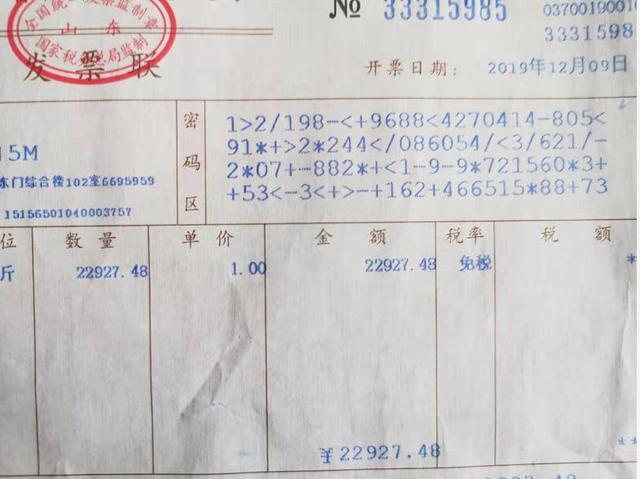 全国统一发票监制章
山东
国家税务总局监制
发票联
№ 33315985
0370019001
3331598
开票日期: 2019年12月09日
密码区
1>2/198-<+9688<4270414-805<
91*+>2*244</086054/<3/621/-
2*07+-882*+<1-9-9*721560*3+
+53<-3<+>-+162+466515*88+73
15M
东门综合楼102室6695959
15156501040003757
位 数量 单价 金额 税率 税额
斤 22927.48 1.00 22927.48 免税 *
¥22927.48 **